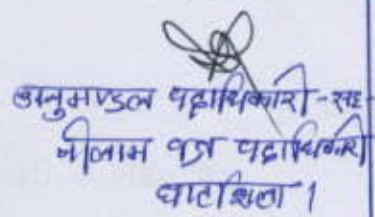 अनुमण्डल पदाधिकारी-सह-
नीलाम पत्र पदाधिकारी
घाटशिला।